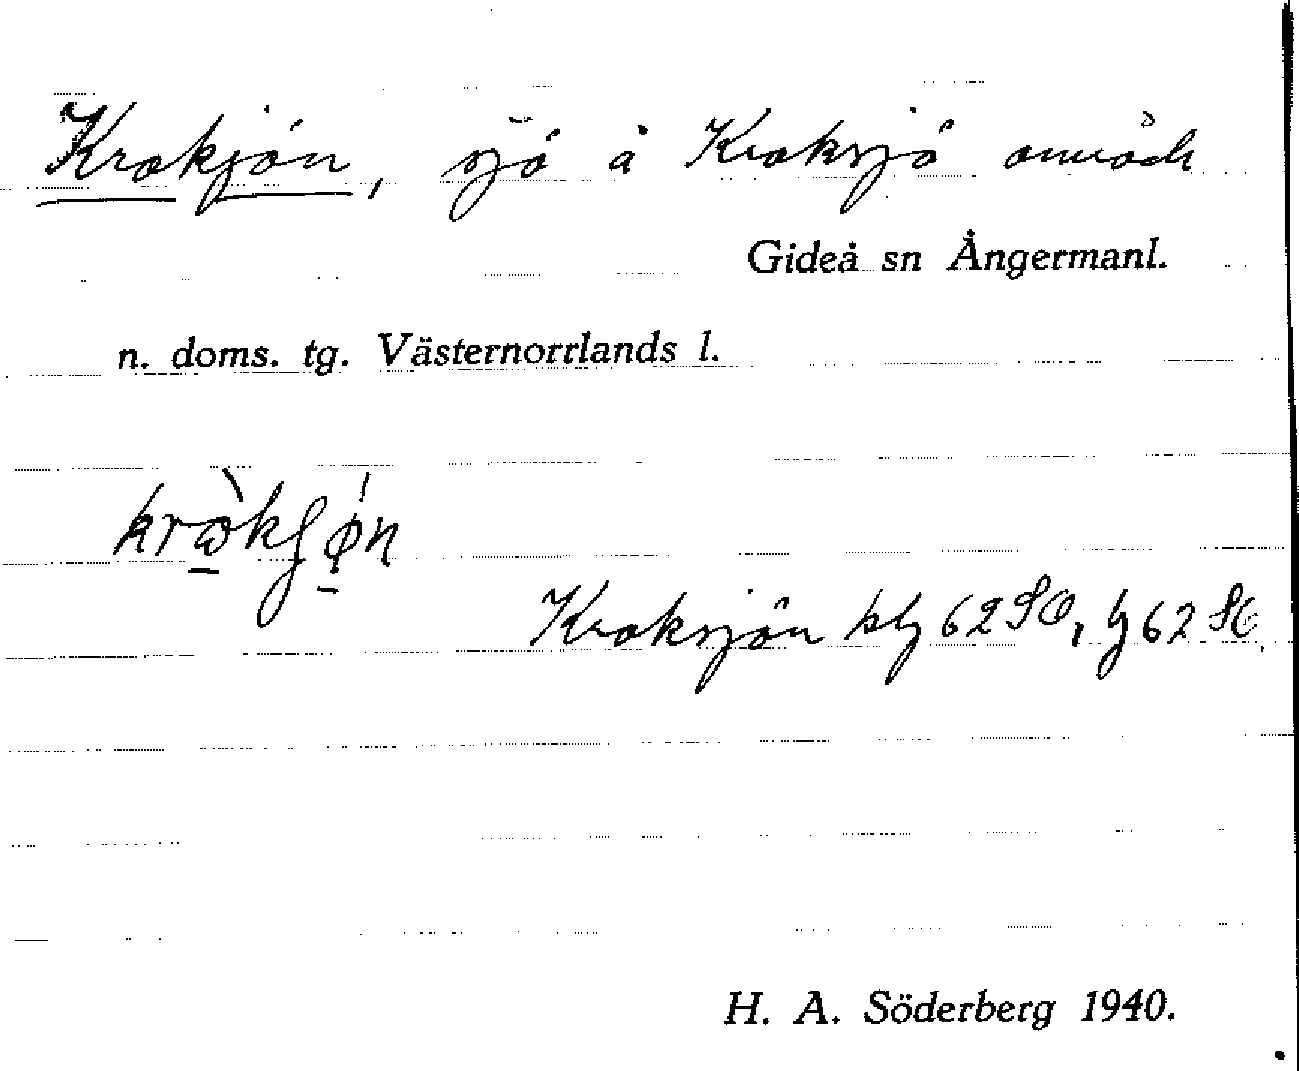 Krokjön, sjö å Kroksjö område
Gideå sn Ångermanl.
n. doms. tg. Västernorrlands l.
Kroksjön blg 62 SO, lg 62 SO
H. A. Söderberg 1940.